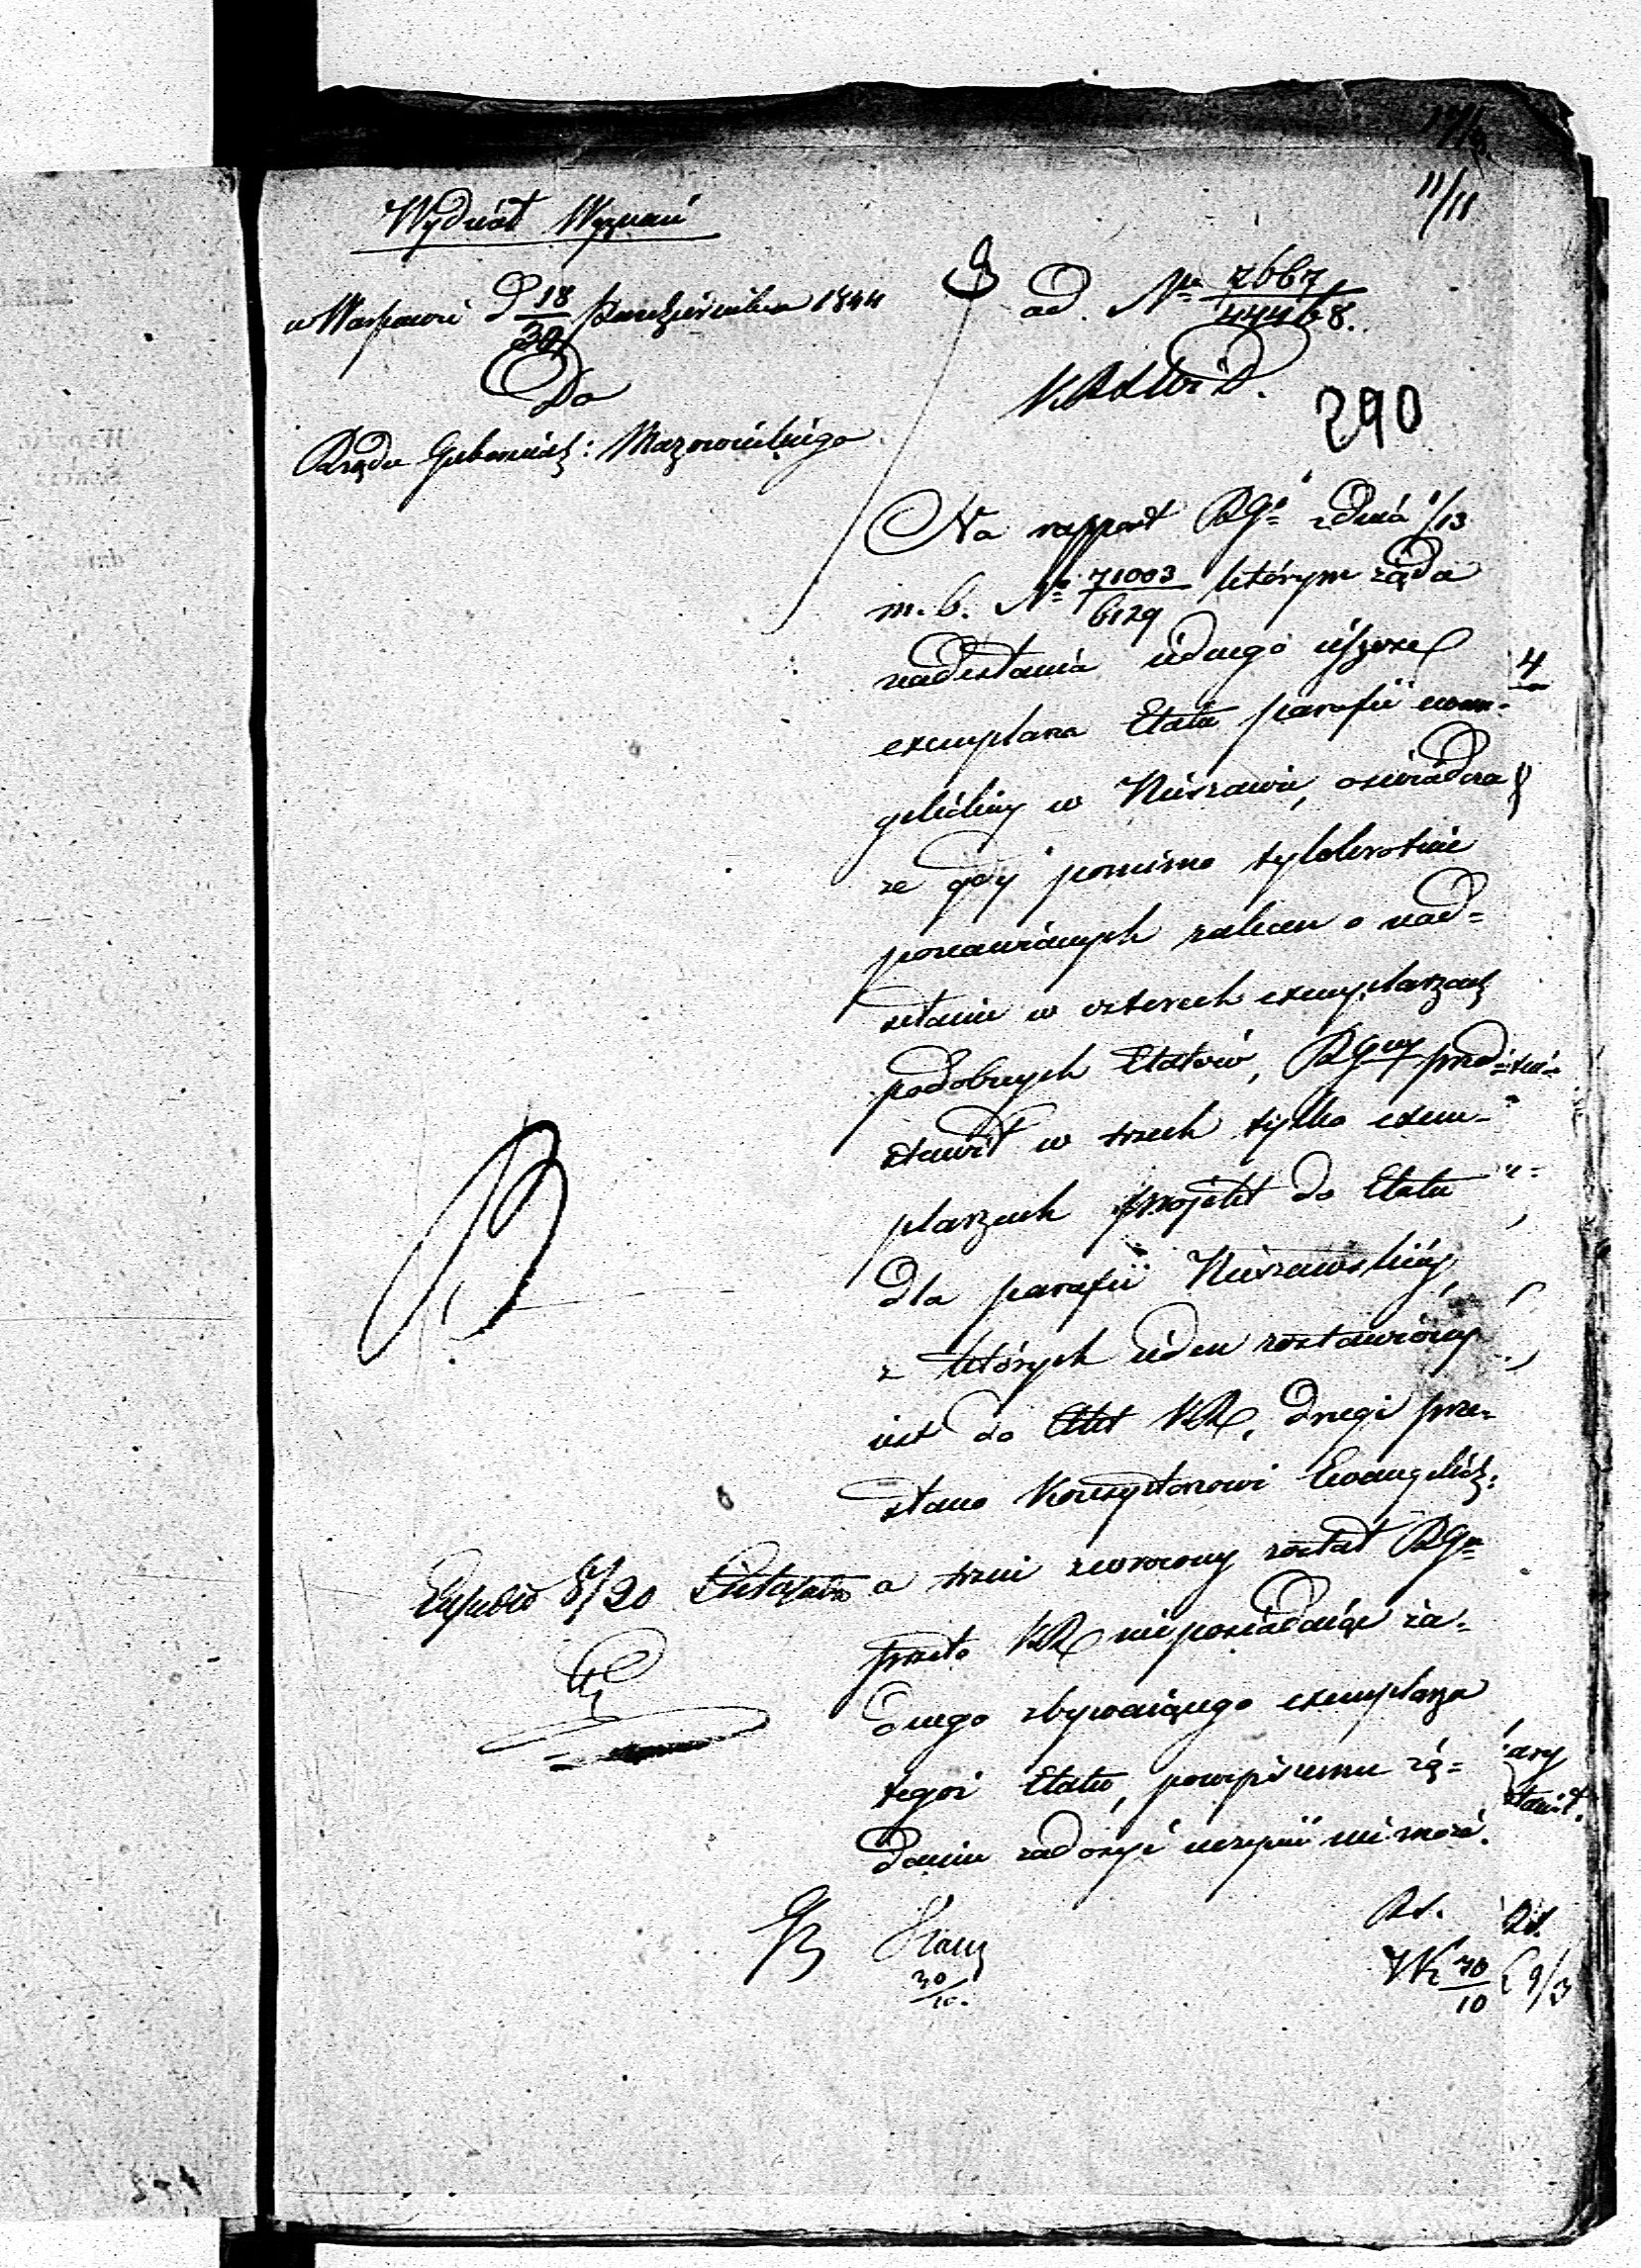 11/11
Wydział Wyznań
w Warszawie d 18/30 Października 1844
Do
Rządu Gubernial: Mazowieckiego
ad. Nr 7667/44468.
290
Na rapport RGo z dnia 1/13
m. b. No 71003/6129 którym żąda
nadesłania iednego ieszcze
exemplarza Etatu parafii ewan-
gelickiey w Nieszawie, oświadcza
że gdy pomimo tylokrotnie
ponawianych zaleceń o nad=
słanie w czterech exemplarzach
podobnych Etatów, RGny przed=
stawił w trzech tylko exem-
plarzach projekt do Etatu
dla parafii Nieszawskiéy,
z których ieden zostawiony
iest do Akt KR, drugi prze-
słano Konsystorzowi Ewangelick:
a trzeci zwrócony został RGo
przeto KR nieposiadaiąc ża-
dnego zbywaiącego exemplarza
tegoż Etatu, powyższemu żą=
daniu zadosyć uczynić nie może.
Expedio 8/20 Listopada
30/10.
4